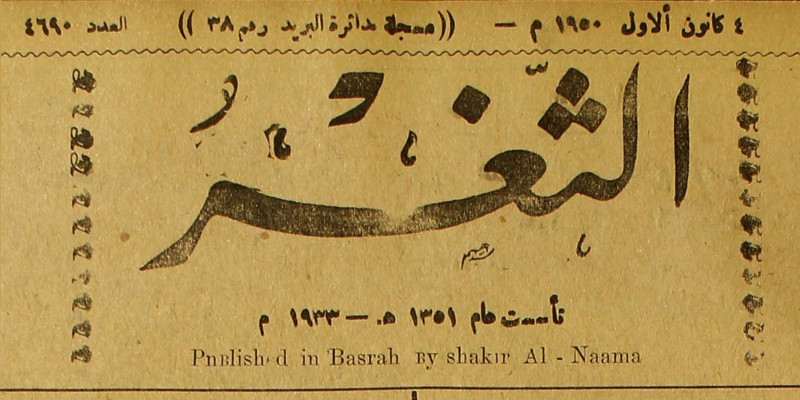 ٤ كانون ألاول ١٩٥٠ م — ((مسجلة بدائرة البريد رقم ٣٨)) العدد ٤٦٩٠
الثغر
تأسست عام ١٣٥١ هـ — ١٩٣٣ م
Published in Basrah By shakir Al - Naama